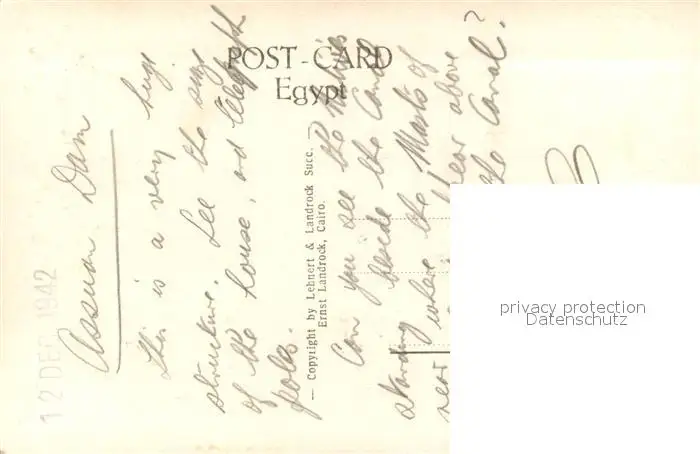 POST-CARD
Egypt
12 DEP 1942
Assuan Dam
This is a very huge
structure. See the size
of the house, and telegraph
poles.
— Copyright by Lehnert & Landrock Succ. —
Ernst Landrock, Cairo.
Can you see the natives
beside the Canal
standing where the Masts of
near above
near the Canal?
privacy protection
Datenschutz